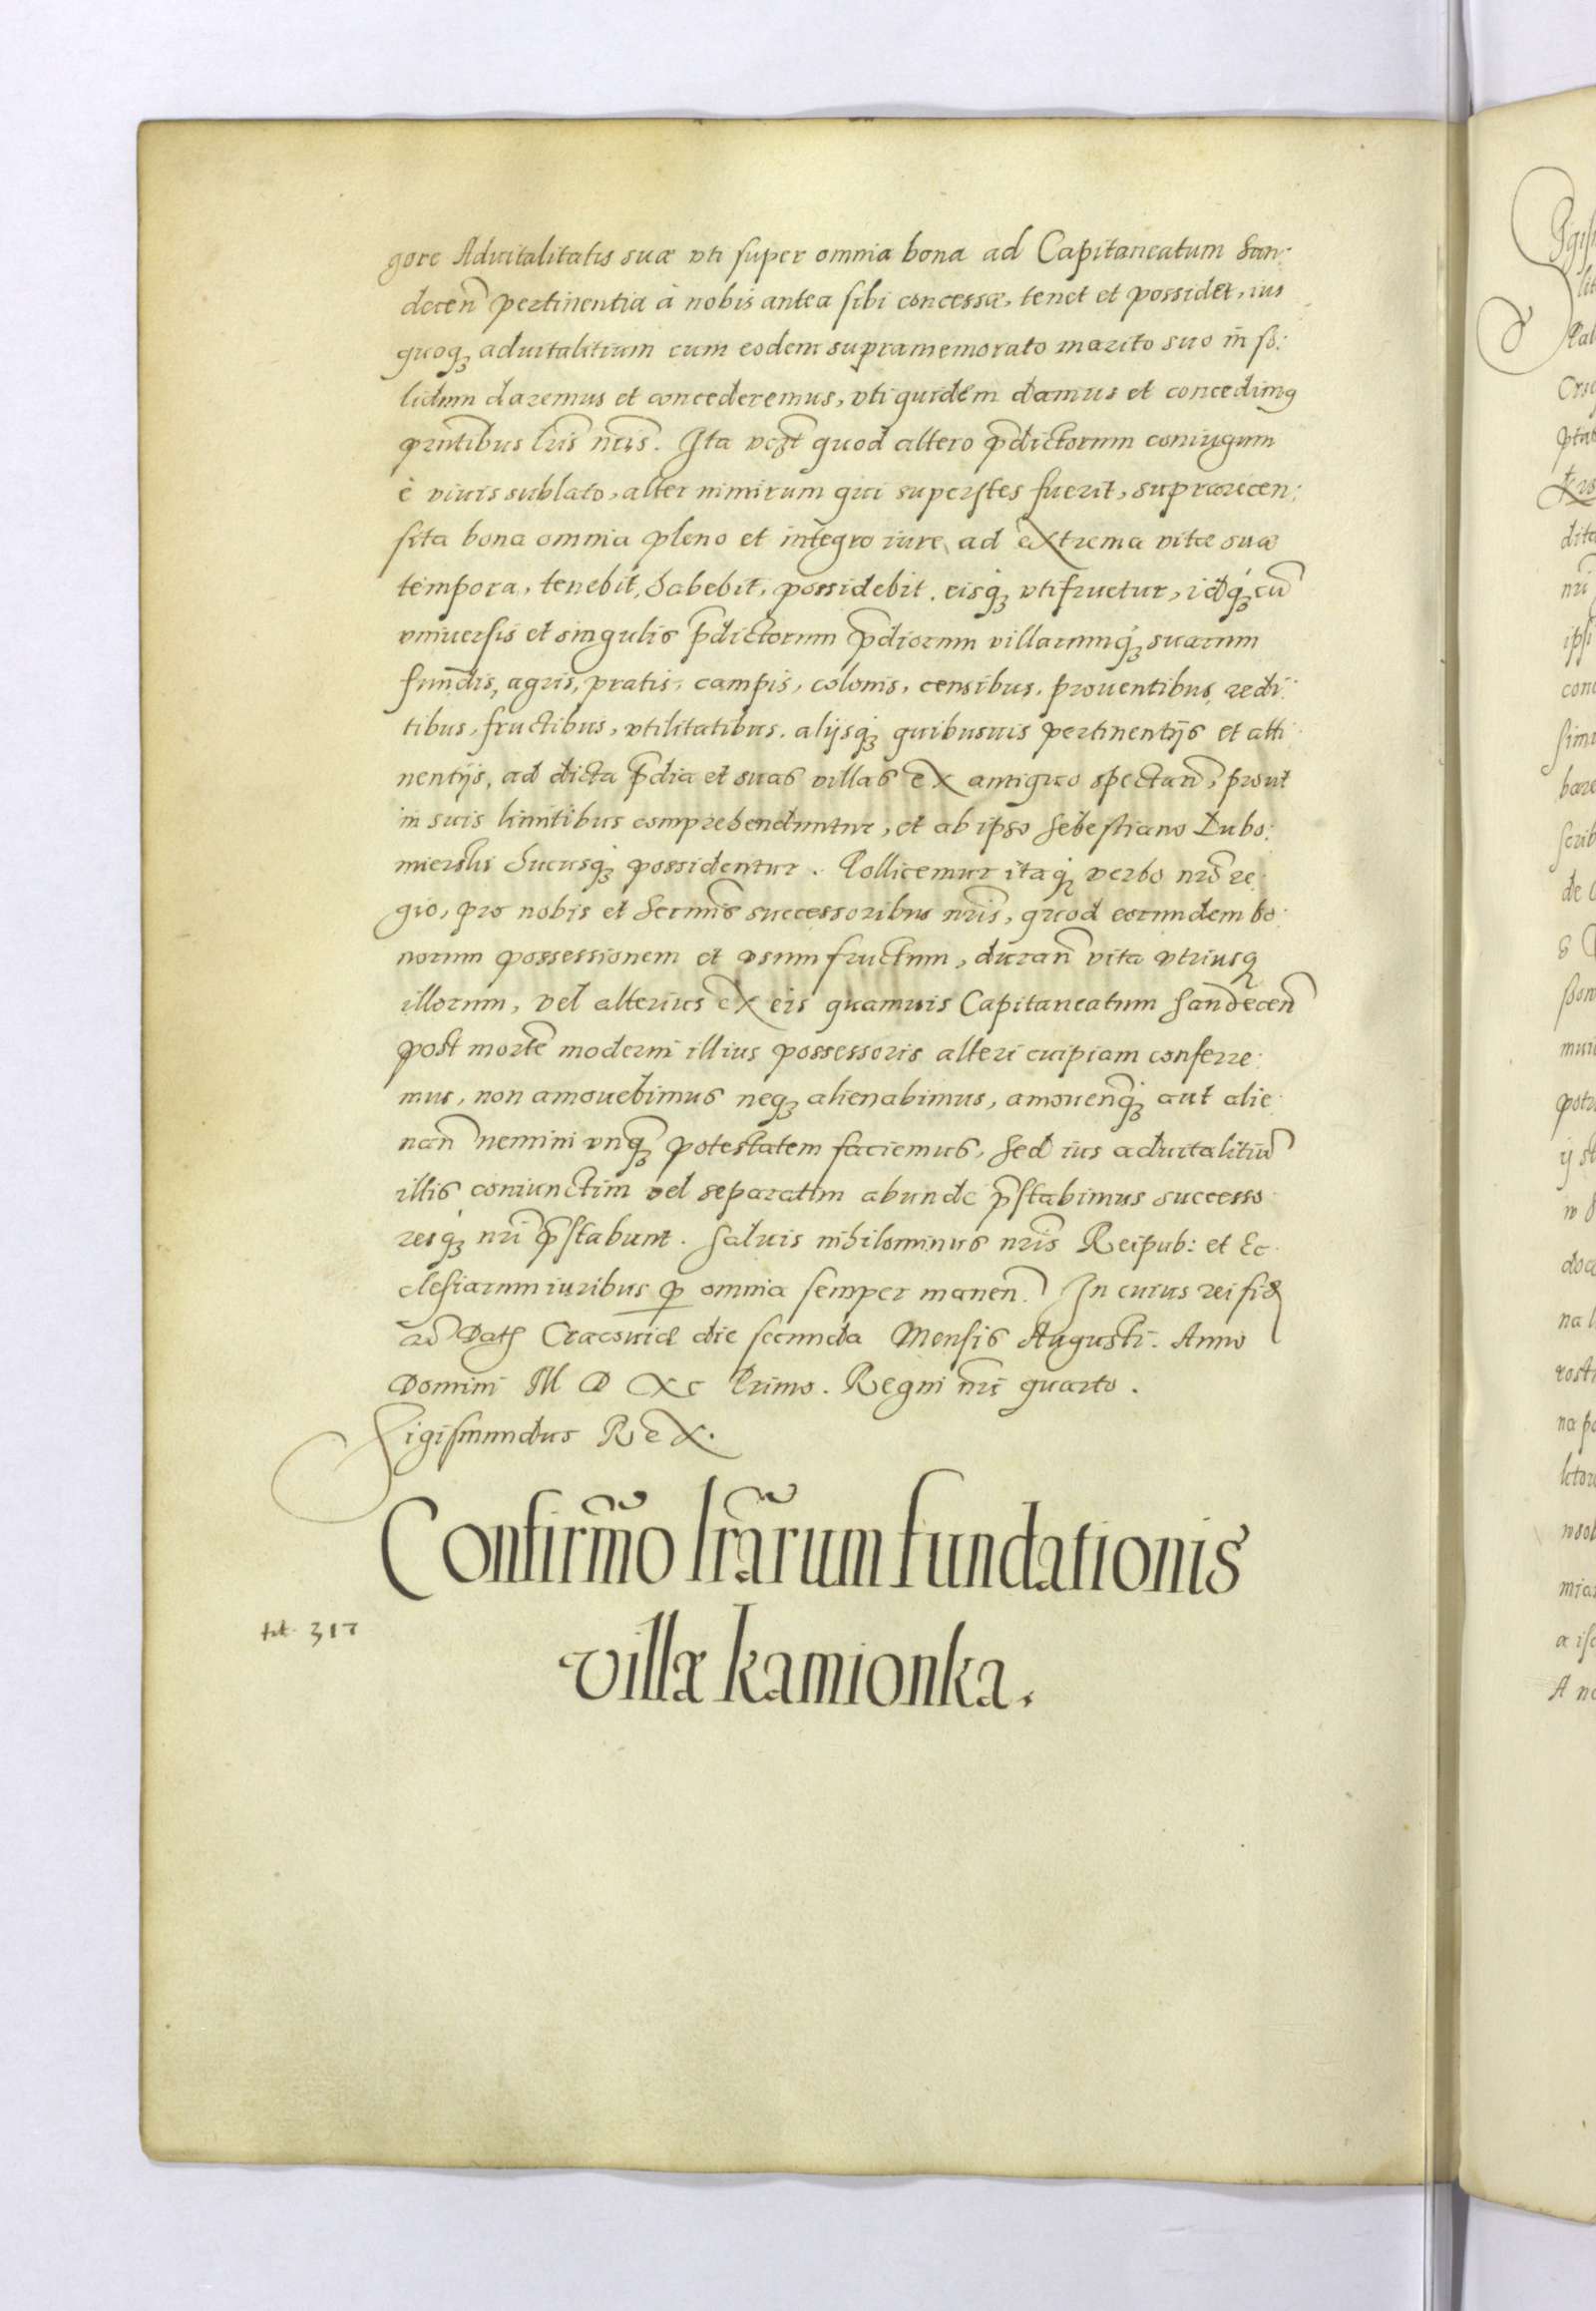 gore Aduitalitatis suæ vti super omnia bona ad Capitaneatum San-
decen̄ pertinentia à nobis antea sibi concessæ, tenet et possidet, ius
quoqꝫ aduitalitium cum eodem supramemorato marito suo in so:
lidum daremus et concederemus, vti quidem damus et concedimꝰ
pn̄tibus lr̄is nr̄is. Ita vcꝫt quod altero p̄dictorum coniugum
è viuis sublato, alter nimirum qui superstes fuerit, supra recen:
sita bona omnia pleno et integro iure, ad extrema vitæ suæ
tempora, tenebit, habebit, possidebit. eisqꝫ vtifruetur, idqꝫ cū
vniuersis et singulis p̄dictorum p̄diorum villarumqꝫ suarum
fundis, agris, pratis, campis, colonis, censibus, prouentibus, redi-
tibus, fructibus, vtilitatibus. alijsqꝫ quibusuis pertinentijs et atti
nentijs, ad dicta p̄dia et suas villas ex antiquo spectan̄, prout
in suis limitibus comprehenduntur, et ab ipso Sebestiano Lubo:
mierski hucusqꝫ possidentur. Pollicemur itaqꝫ verbo nr̄o re
gio, pro nobis et Serm̄is successoribus nr̄is, quod eorundem bo-
norum possessionem et vsumfructum, duran̄ vita vtriusqꝫ
illorum, vel alterius ex eis quamuis Capitaneatum Sandecen̄
post mortē moderni illius possessoris alteri cuipiam conferre-
mus, non amouebimus neqꝫ alienabimus, amouen̄qꝫ aut alie-
nan̄ nemini vnqꝫ potestatem faciemus, Sed ius aduitalitiū
illis coniunctim vel separatim abunde p̄stabimus successo
resqꝫ nr̄i p̄stabunt. Saluis nihilominus nr̄is Reipub: et Ec-
clesiarum iuribus ꝑ omnia semper manen̄. In cuius rei fid
Dat Cracouiæ die secunda Mensis Augusti. Anno
Domini M D XC Primo. Regni nr̄i quarto.
Sigismundus Rex.
Confirm̄o lr̄arum fundationis
villæ kamionka.
317